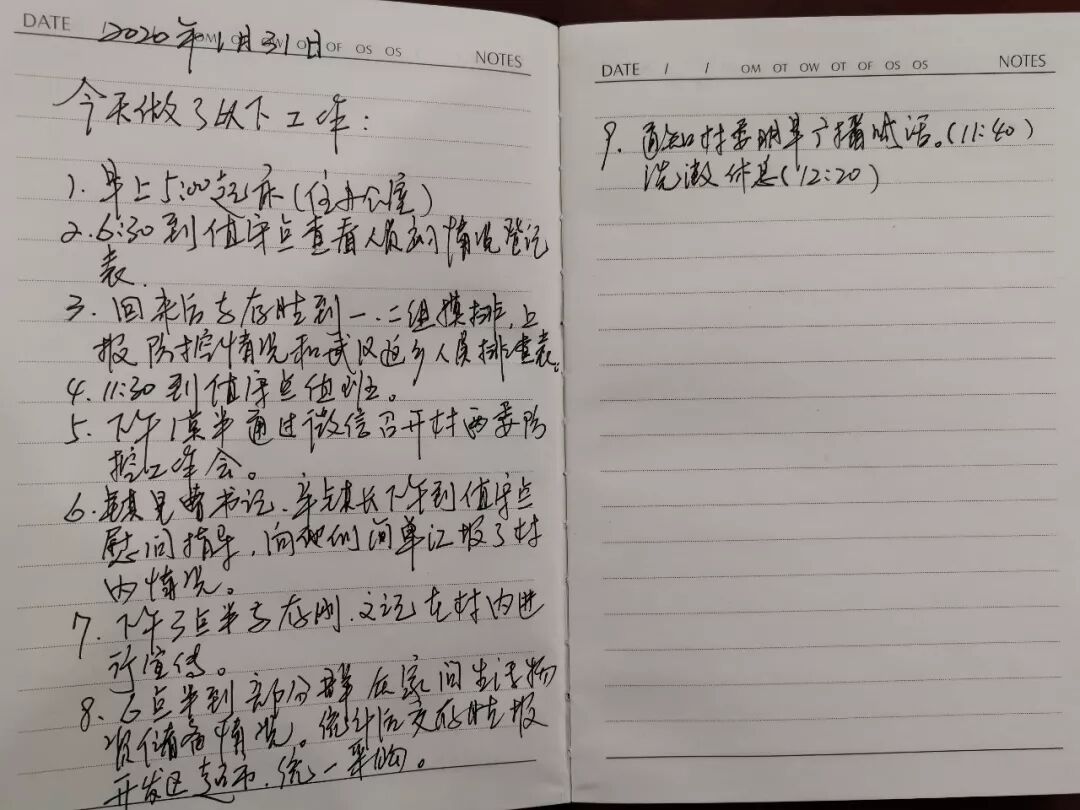 DATE 2020年1月31日 OM OT OW OT OF OS OS NOTES
今天做了以下工作:
1. 早上5:00起床(住办公室)
2. 6:30到值守点查看人员到情况登记
表.
3. 回来后与存胜到一.二组摸排,上
报防控情况和武汉返乡人员排查表。
4. 11:30到值守点值班。
5. 下午1点半通过微信召开村两委防
控工作会。
6. 镇里曹书记、镇长下午到值守点
慰问指导,向他们简单汇报了村
内情况。
7. 下午3点半与存刚、文记在村内进
行宣传。
8. 6点半到部分群众家问生活物
资储备情况。统计后交存胜报
开发区超市,统一采购。
DATE / / OM OT OW OT OF OS OS NOTES
9. 通知村委明早广播喊话。(11:40)
洗漱休息(12:20)